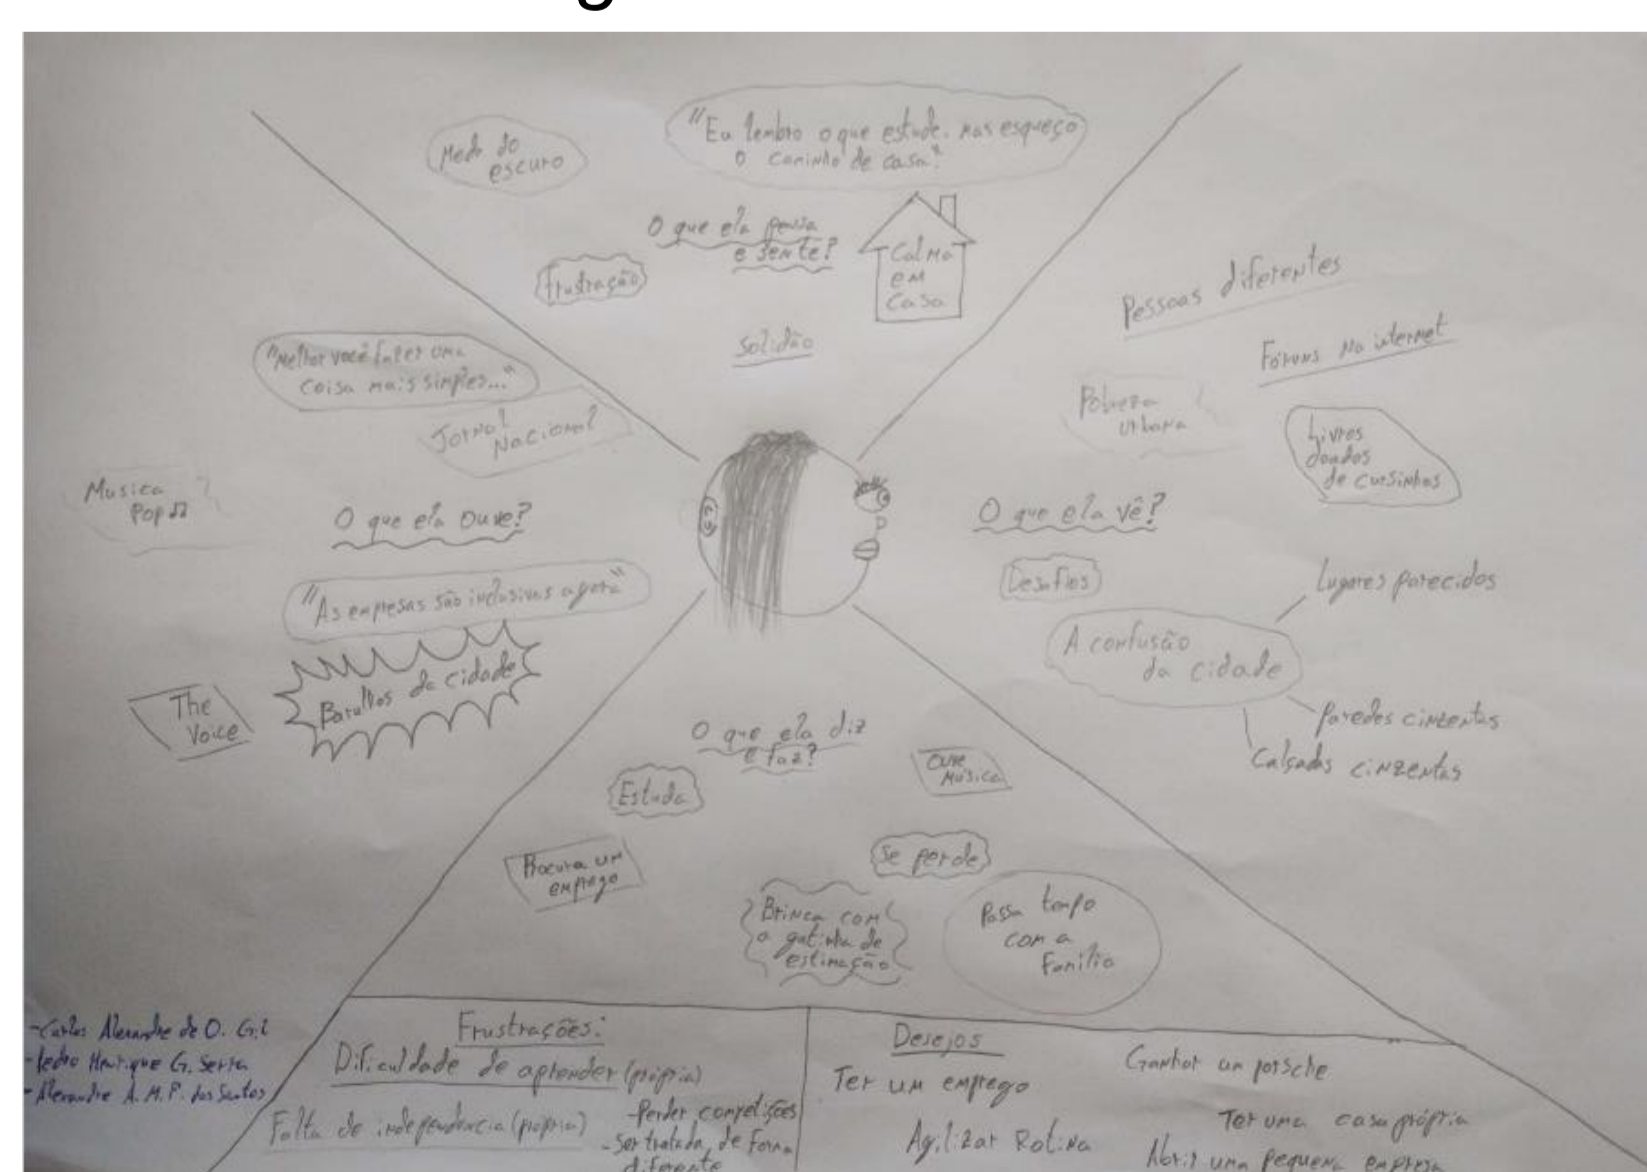 Medo do
escuro
"Eu lembro o que estudei, mas esqueço
o caminho de casa."
O que ela pensa
e sente?
Calma
em
casa
Frustração
Solidão
"Melhor você fazer uma
coisa mais simples..."
Jornal
Nacional
Musica
Pop
O que ela ouve?
"As empresas são inclusivas agora"
Barulhos da cidade
The
Voice
Pessoas diferentes
Fóruns na internet
Pobreza
urbana
Livros
doados
de cursinhos
O que ela vê?
Desafios
A confusão
da cidade
Lugares parecidos
Paredes cinzentas
Calçadas cinzentas
O que ela diz
e faz?
Estuda
Ouve
Música
Procura um
emprego
Se perde
Brinca com
a gatinha de
estimação
Passa tempo
com a
Família
-Carlos Alexandre de O. Gil
-Pedro Henrique G. Serra
-Alexandre A. M. P. dos Santos
Frustrações:
Dificuldade de aprender (própria)
Falta de independencia (própria)
-Perder competições
-Ser tratada de forma
diferente
Desejos
Ter um emprego
Agilizar Rotina
Ganhar um porsche
Ter uma casa própria
Abrir uma pequena empresa